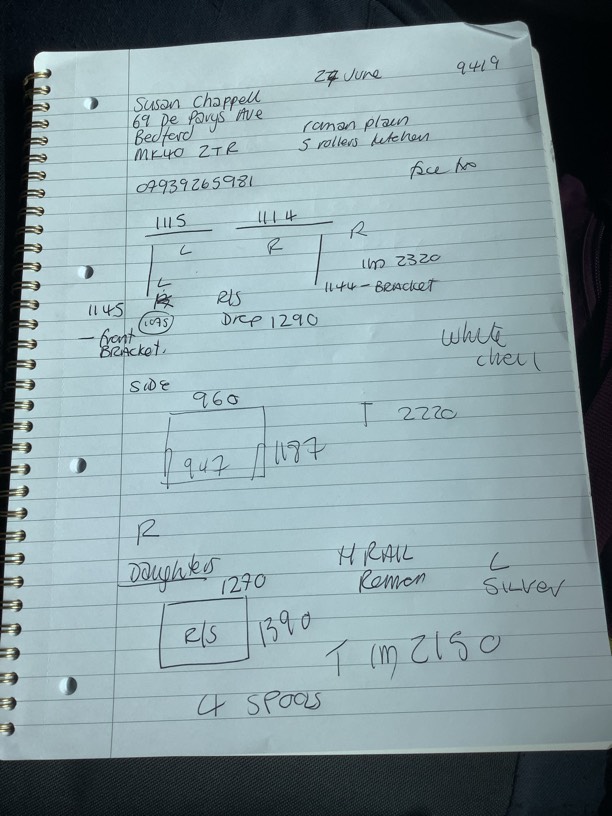 27 June 9419
Susan Chappell
69 De Parys Ave
Bedford
MK40 2TR
roman plain
5 rollers kitchen
07939265981
face
1115 1114
L R R
1m 2320
1144 - BRACKET
L
1145 R/S
1075 Drop 1290
- front
BRACKET.
white
SIDE
960
T 2220
947 1187
R
Daughters H RAIL L
1270 Roman SILVER
R/S 1390
T 1m 2150
4 SPOOLS